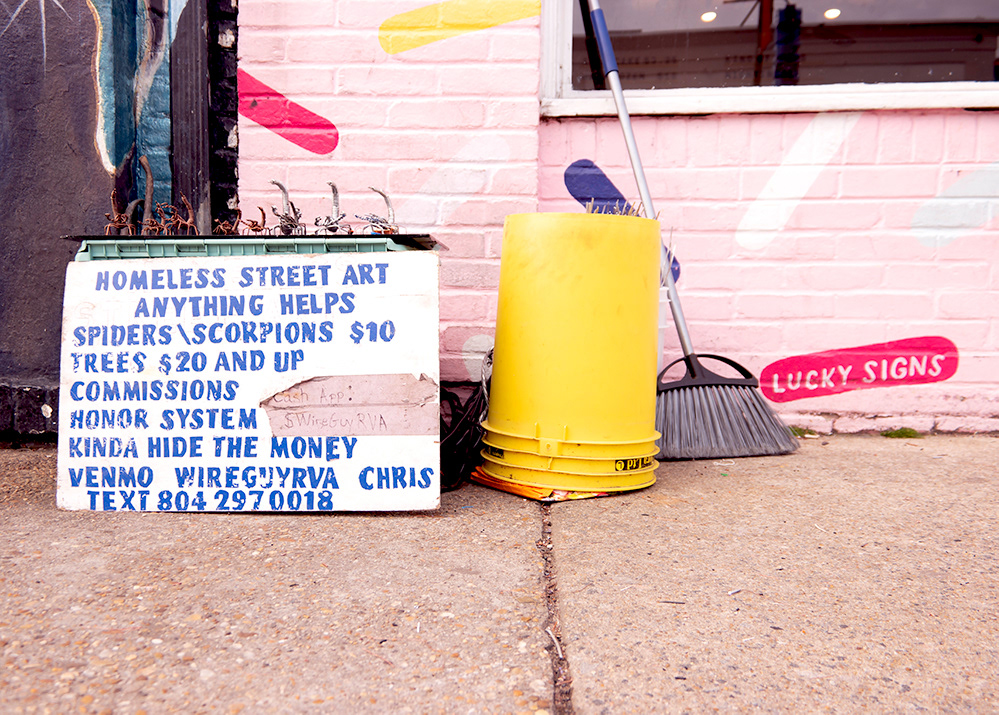 HOMELESS STREET ART
ANYTHING HELPS
SPIDERS\SCORPIONS $10
TREES $20 AND UP
COMMISSIONS
Cash App!
HONOR SYSTEM
$WireGuyRVA
KINDA HIDE THE MONEY
VENMO WIREGUYRVA CHRIS
TEXT 804 297 0018
LUCKY SIGNS